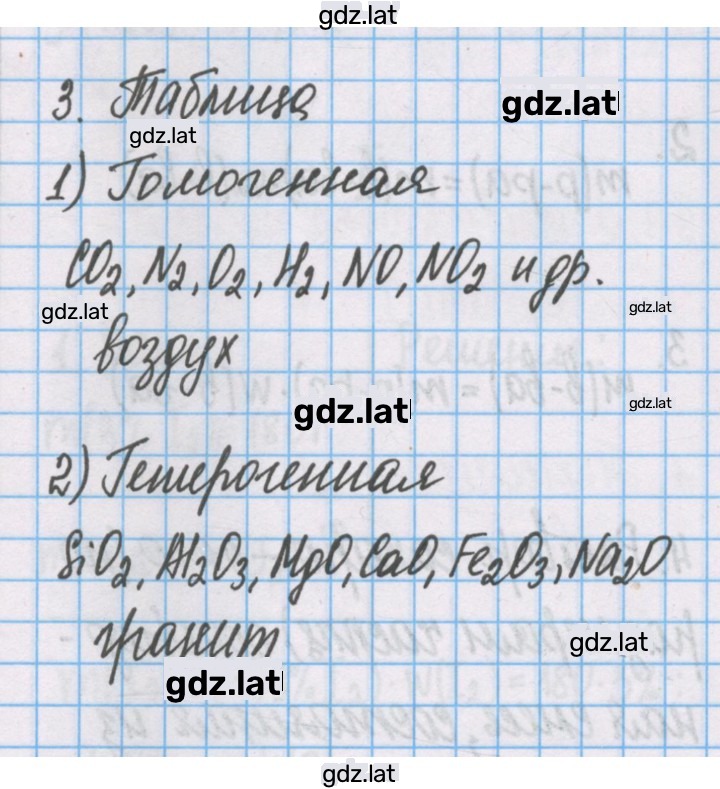 gdz.lat
3. Таблица
gdz.lat
gdz.lat
1) Гомогенная
CO₂, N₂, O₂, H₂, NO, NO₂ и др.
gdz.lat
gdz.lat
воздух
gdz.lat
gdz.lat
2) Гетерогенная
SiO₂, Al₂O₃, MgO, CaO, Fe₂O₃, Na₂O
гранит
gdz.lat
gdz.lat
gdz.lat